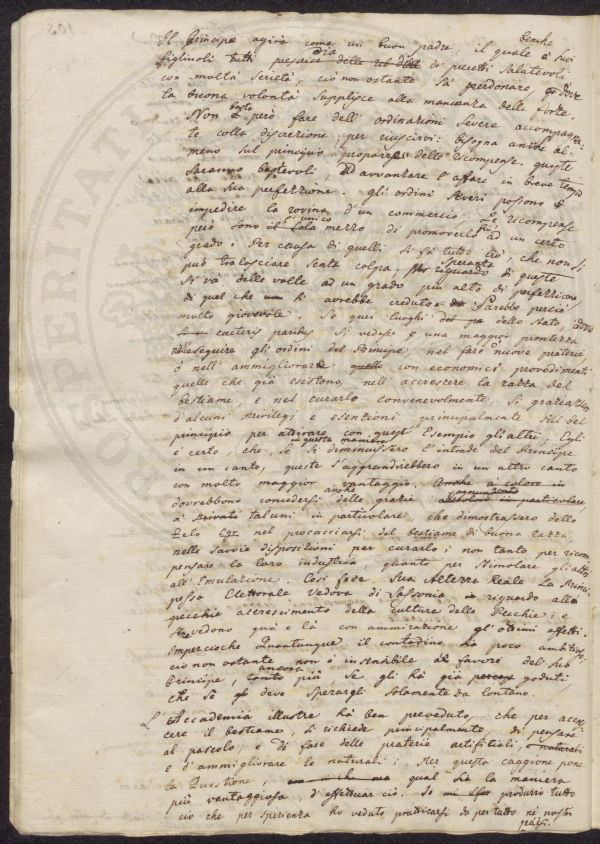 Il Principe agirà come un buon padre, il quale benche à suoi
figliuoli tutti dia di precetti salutevoli
con molta serietà, ciò non ostante sà perdonare, dove
la buona volontà supplisce alla mancanza delle forze.
Non basta però fare dell' ordinazioni severe accompagna-
te colla discrezione; per riuscirvi: bisogna anche al-
meno sul principio proporre delle ricompense. queste
saranno bastevoli, ad avvantare l'affare in breve tempo
alla sua perfezzione. gli ordini severi possono
impedire la rovina d'un commercio; Le ricompense
però sono l'unico mezzo di promoverlo ad un certo
grado; Per causa di quelli si fà tutto ciò, che non si
può tralasciare senza colpa; per speranza di queste
si và delle volte ad un grado più alto di perfezzione
di quel che si avrebbe creduto. Sarebbe perciò
molto giovevole, se quei luoghi dello stato, dove
caeteris paribus si vedesse una maggior prontezza
nel eseguire gli ordini del Principe nel fare nuove praterie
ò nell' ammigliorare con economici provedimenti
quelle che già esistono, nell' accrescere la razza del
bestiame, e nel curarlo convenevolmente, si graziassero
d'alcuni privilegj e esentioni principalmente sul bel
principio per attirare con quest' Esempio gli altri; Egli
è certo, che, se in questa maniera si diminuissero l'intrade del Principe
in un canto, queste s'aggrandirebbero in un altro canto
con molto maggior vantaggio.
dovrebbono concedersi delle grazie anche
à privati taluni in particolare, che dimostrassero dello
Zelo nel procacciarsi del bestiame di buona razza,
nelle savie disposizioni per curarlo; non tanto per ricom-
pensare la loro industria, quanto per stimolare gli altri
all' Emulazione. Così fece Sua Altezza Reale La Prin-
pessa Elettorale Vedova di Sassonia in riguardo alle
pecchie all'accrescimento della culture delle Pecchie: e
si vedono quà e là con ammirazione gl'ottimi effetti.
Impercioche Quantunque il contadino hà poco ambitione
ciò non ostante non è insensibile al favore del suo
Principe, ancora più, se gli hà già goduti,
che se deve sperargli solamente da lontano.
L'Accademia illustre hà ben preveduto, che per acre-
cere il bestiame, si richiede principalmente, di pensare
al pascolo, e di fare delle praterie artifiziali,
e d'ammigliorare le naturali; Per questa caggione pone
la Questione, qual sia la maniera
più vantaggiosa, d'effettuar ciò. Se mi produrrò tutto
ciò che per sperienza hò veduto pratticarsi da per tutto ne' nostri
paesi.